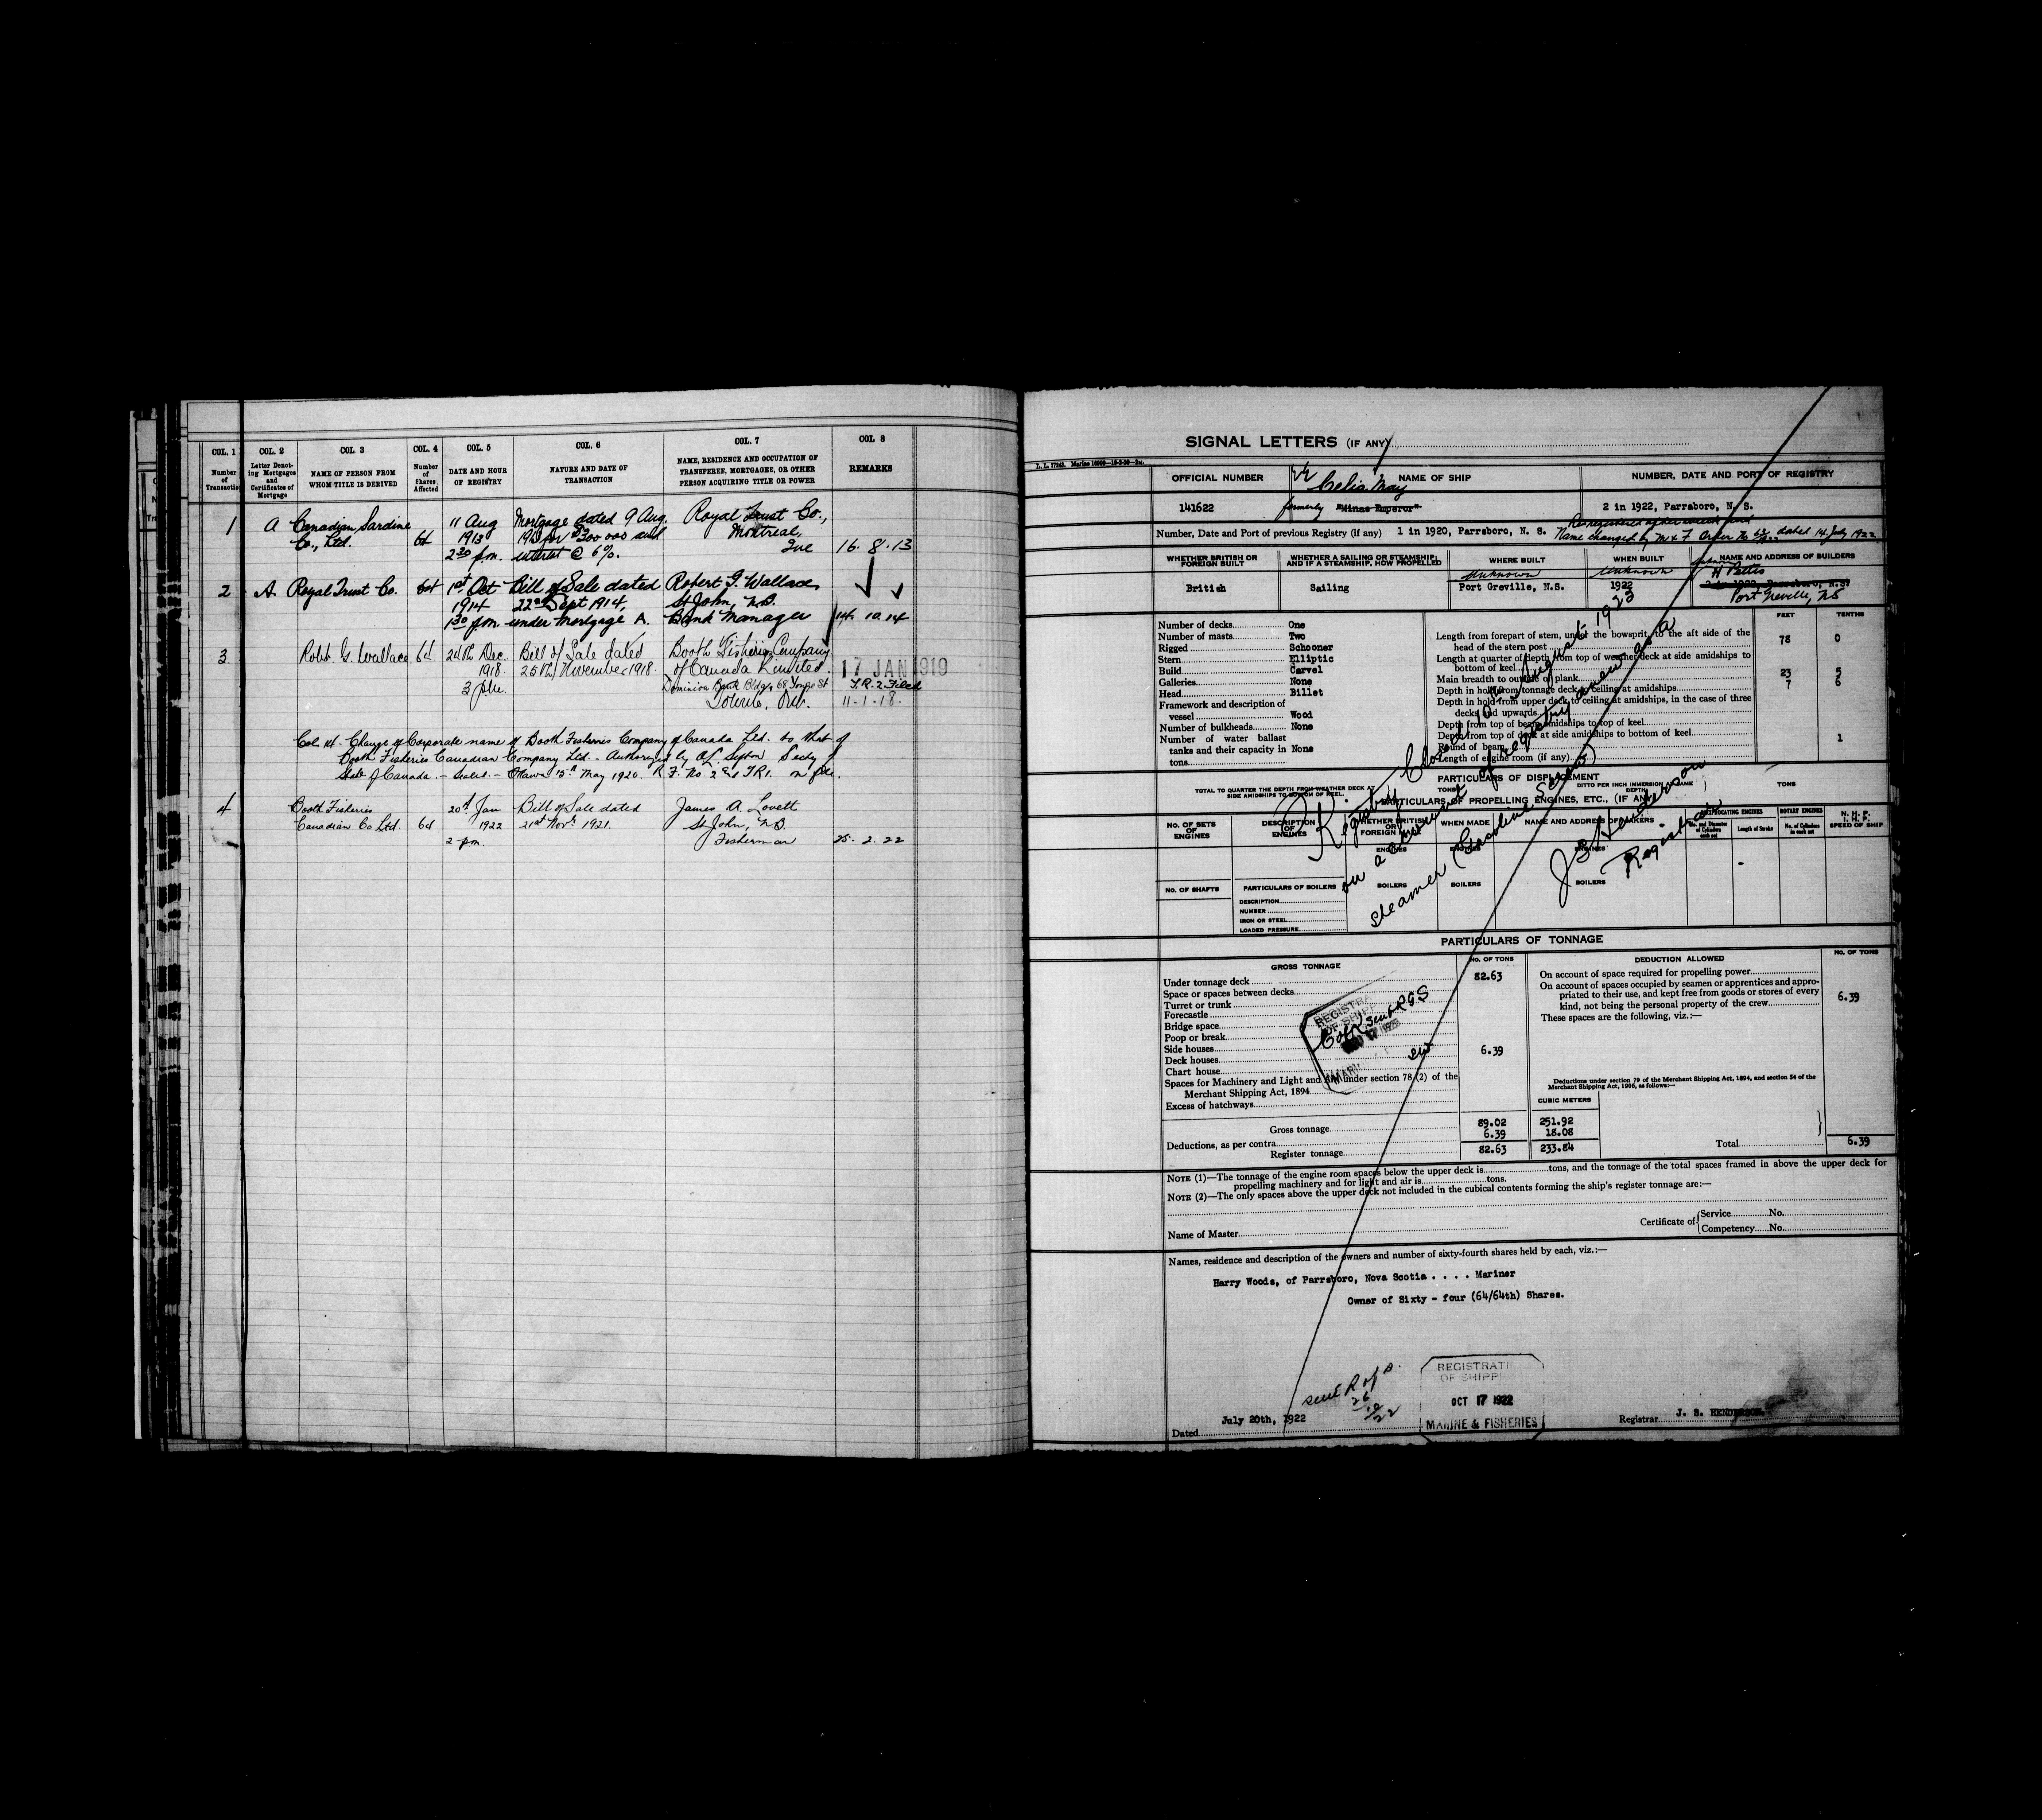 COL. 1 COL. 2 COL. 3 COL. 4 COL. 5 COL. 6 COL. 7 COL 8
Number of Transaction
Letter Denoting Mortgages and Certificates of Mortgage
NAME OF PERSON FROM WHOM TITLE IS DERIVED
Number of Shares Affected
DATE AND HOUR OF REGISTRY
NATURE AND DATE OF TRANSACTION
NAME, RESIDENCE AND OCCUPATION OF TRANSFEREE, MORTGAGEE, OR OTHER PERSON ACQUIRING TITLE OR POWER
REMARKS
1 A Canadian Sardine 11 Aug Mortgage dated 9 Aug. Royal Trust Co.,
Co., Ltd. 64 1913 1913 for $300 000 and Montreal,
2 30 p.m. interest @ 6%. Que 16. 8. 13
2 A Royal Trust Co. 64 1st Oct Bill of Sale dated Robert G. Wallace,
1914 22nd Sept 1914, St John, N.B.
1 30 p.m. under mortgage A. Bank Manager 14. 10. 14
3 Robt. G. Wallace 64 24th Dec. Bill of Sale dated Booth Fisheries Company
1918 25th November 1918. of Canada Limited. 17 JAN 1919
3 p.m. Dominion Bank Bldg, 68 Yonge St T.R. 2 Filed
Toronto, Ont. 11-1-18.
Change of Corporate name of Booth Fisheries Company of Canada Ltd. to that of
Booth Fisheries Canadian Company Ltd. - Authorized by Secty of
State of Canada. - Ottawa 15th May 1920. R.F. No. 2 and T.R.1. on file.
4 Booth Fisheries 20th Jan Bill of Sale dated James A. Lovett
Canadian Co Ltd. 64 1922 21st Novr 1921. St John, N.B.
2 pm Fisherman 25. 2. 22
SIGNAL LETTERS (IF ANY)
OFFICIAL NUMBER NAME OF SHIP NUMBER, DATE AND PORT OF REGISTRY
Celia May
141622 formerly "Minas Emperor" 2 in 1922, Parrsboro, N. S.
Number, Date and Port of previous Registry (if any) 1 in 1920, Parrsboro, N. S.
Name changed by M & F Order No dated 14 July 1922
WHETHER BRITISH OR FOREIGN BUILT
WHETHER A SAILING OR STEAMSHIP; AND IF A STEAMSHIP, HOW PROPELLED
WHERE BUILT
WHEN BUILT
NAME AND ADDRESS OF BUILDERS
Unknown Unknown H Pettis
British Sailing Port Greville, N.S. 1922 2 in 1922, Parrsboro, N.S.
Port Greville, NS
FEET TENTHS
Number of decks One
Number of masts Two
Rigged Schooner
Stern Elliptic
Build Carvel
Galleries None
Head Billet
Framework and description of vessel Wood
Number of bulkheads None
Number of water ballast tanks and their capacity in tons None
Length from forepart of stem, under the bowsprit, to the aft side of the head of the stern post 78 0
Length at quarter of depth from top of weather deck at side amidships to bottom of keel
Main breadth to outside of plank 23 5
Depth in hold from tonnage deck to ceiling at amidships 7 6
Depth in hold from upper deck to ceiling at amidships, in the case of three decks and upwards
Depth from top of beam amidships to top of keel
Depth from top of deck at side amidships to bottom of keel
Round of beam 1
Length of engine room (if any)
PARTICULARS OF DISPLACEMENT
TOTAL TO QUARTER THE DEPTH FROM WEATHER DECK AT SIDE AMIDSHIPS TO BOTTOM OF KEEL. TONS DITTO PER INCH IMMERSION AT SAME DEPTH TONS
PARTICULARS OF PROPELLING ENGINES, ETC., (IF ANY)
NO. OF SETS OF ENGINES
DESCRIPTION OF ENGINES
WHETHER BRITISH OR FOREIGN MADE
WHEN MADE
NAME AND ADDRESS OF MAKERS
RECIPROCATING ENGINES
No. and Diameter of Cylinders each set
Length of Stroke
ROTARY ENGINES
No. of Cylinders in each set
N. H. P.
I. H. P.
SPEED OF SHIP
ENGINES ENGINES ENGINES
NO. OF SHAFTS PARTICULARS OF BOILERS BOILERS BOILERS BOILERS
DESCRIPTION
NUMBER
IRON OR STEEL
LOADED PRESSURE
Registry Closed 10th August 1923
on account of registry anew as a
Steamer (Gasoline Screw)
J S Henderson
Registrar
PARTICULARS OF TONNAGE
GROSS TONNAGE NO. OF TONS DEDUCTION ALLOWED NO. OF TONS
Under tonnage deck 82.63
Space or spaces between decks
Turret or trunk
Forecastle
Bridge space
Poop or break
Side houses
Deck houses 6.39
Chart house
Spaces for Machinery and Light and Air under section 78 (2) of the Merchant Shipping Act, 1894
Excess of hatchways
On account of space required for propelling power
On account of spaces occupied by seamen or apprentices and appropriated to their use, and kept free from goods or stores of every kind, not being the personal property of the crew 6.39
These spaces are the following, viz.:—
Deductions under section 79 of the Merchant Shipping Act, 1894, and section 54 of the Merchant Shipping Act, 1906, as follows:—
CUBIC METERS
Gross tonnage 89.02 251.92
Deductions, as per contra 6.39 18.08
Register tonnage 82.63 233.84
Total 6.39
NOTE (1)—The tonnage of the engine room spaces below the upper deck is tons, and the tonnage of the total spaces framed in above the upper deck for
propelling machinery and for light and air is tons.
NOTE (2)—The only spaces above the upper deck not included in the cubical contents forming the ship's register tonnage are:—
Name of Master
Certificate of Service No.
Competency No.
Names, residence and description of the owners and number of sixty-fourth shares held by each, viz.:—
Harry Woods, of Parrsboro, Nova Scotia . . . . Mariner
Owner of Sixty - four (64/64th) Shares.
sent R of S.
26
10
22
REGISTRATI
OF SHIPPI
OCT 17 1922
MARINE & FISHERIES
Dated July 20th, 1922
Registrar J. S. HENDERSON.